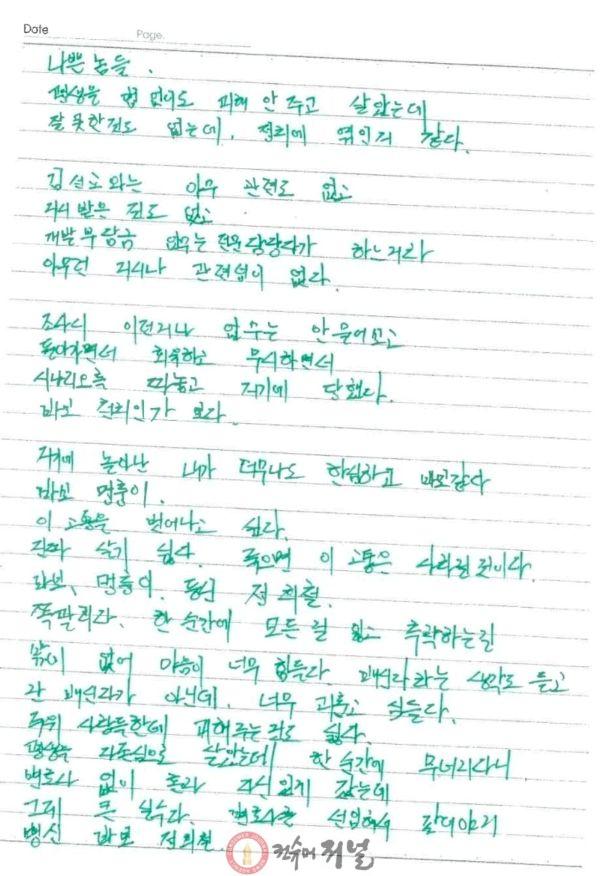 Date
Page.
나쁜 놈들.
평생을 법 없이도 피해 안 주고 살았는데
잘못한 점도 없는데, 정치에 엮인거 같다.
김선교와는 아무 관련도 없고
지시 받은 점도 없고
개발부담금 업무는 전용 담당자가 하는거라
아무런 지시나 관련성이 없다.
조사시 이런거나 업무는 안 물어보고
몰아치면서 회유하고 무시하면서
시나리오를 짜놓고 거기에 당했다.
바보 천치인가 보다.
거기에 놀아난 내가 너무나도 한심하고 바보같다
바보 멍퉁이.
이 고통을 벗어나고 싶다.
진짜 살기 싫다. 죽으면 이 고통은 사라질 것이다.
바보, 멍퉁이, 병신
쪽팔리다. 한 순간에 모든 걸 잃고 추락하는길
밖에 없어 마음이 너무 힘들다. 배신자라는 생각도 들고
난 배신자가 아닌데, 너무 괴롭고 힘들다.
주위 사람들한테 피해주는 것도 싫다.
평생을 자존심으로 살았는데 한 순간에 무너지다니
변호사 없이 혼자 자신있게 갔는데
그게 큰 실수다. 변호사를 선임해서 갈 것이지
병신 바보
컨슈머저널